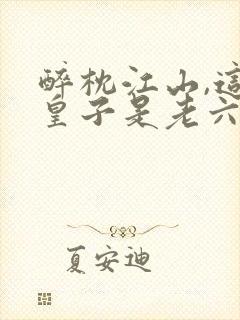 醉枕江山,這
皇子是老六
夏安迪